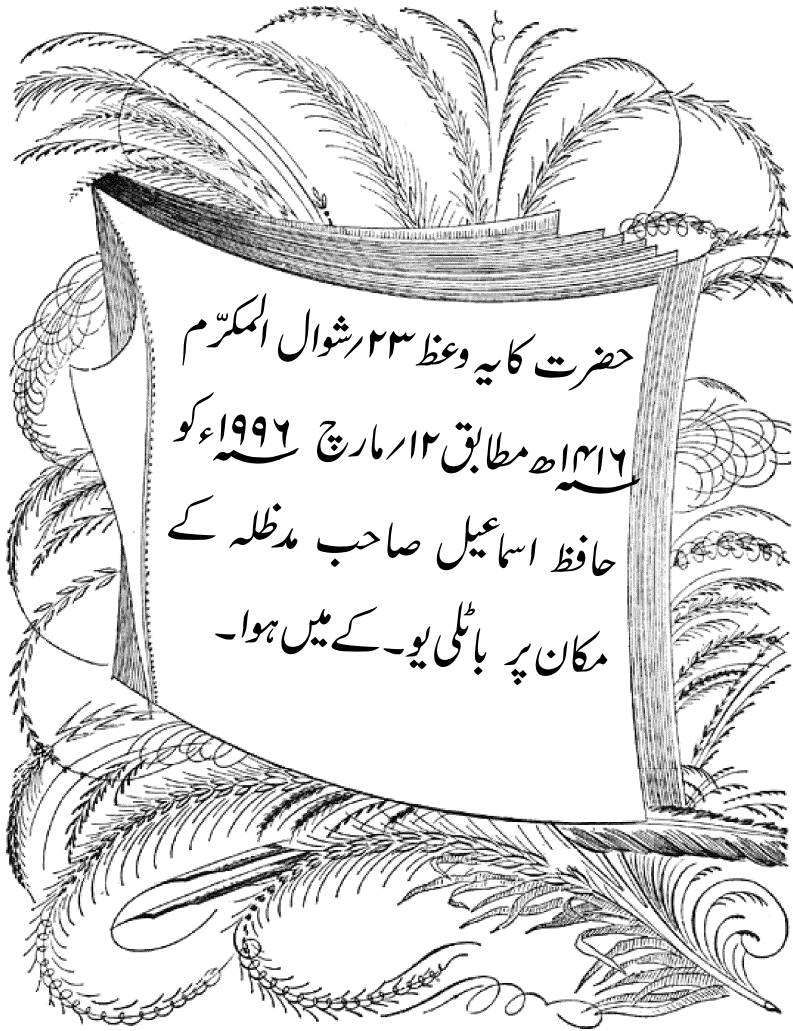 حضرت کا یہ وعظ ۲۳؍شوال المکرّم
۱۴۱۶ھ مطابق ۱۲؍مارچ ۱۹۹۶ء کو
حافظ اسماعیل صاحب مدظلہ کے
مکان پر باٹلی یو۔کے میں ہوا۔